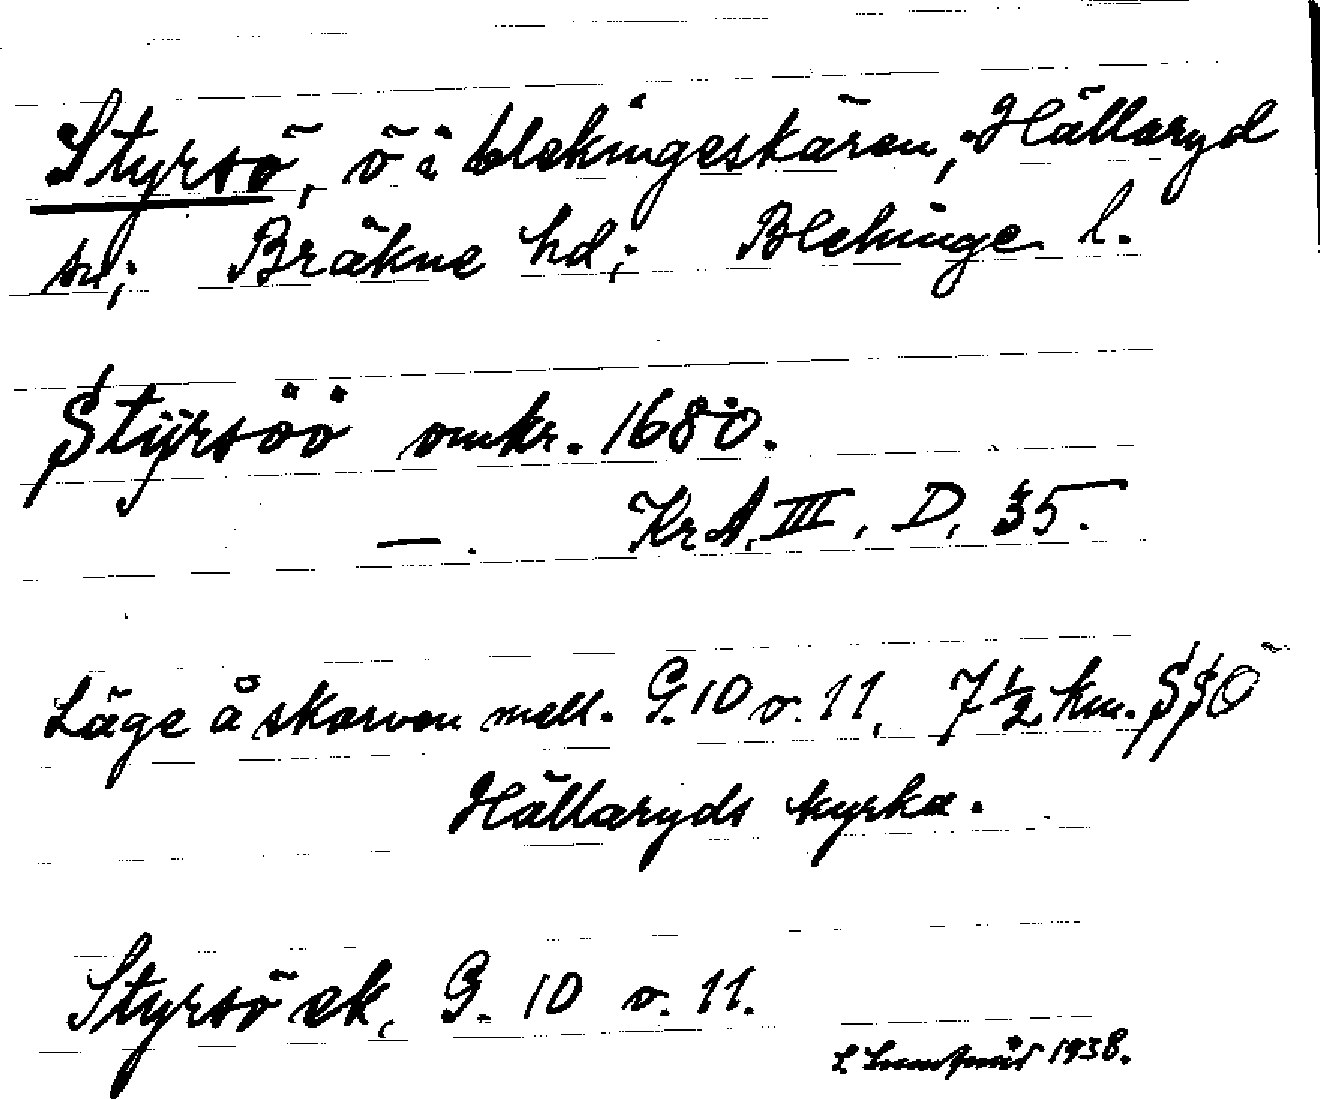 Styrsö, ö i blekingeskären, Hällaryd
sn; Bräkne hd; Blekinge l.
Stÿrsöö omkr. 1680.
—. KrA, III, D, 35.
Läge å skarven mell. G. 10 o. 11, 7½ km. SSO
Hällaryds kyrka.
Styrsö ek. G. 10 o. 11.
1938.